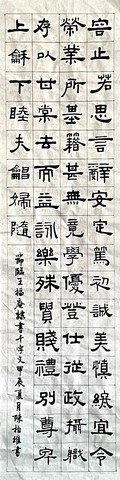 容止若思言辭安定篤初誠美慎終宜令
榮業所基籍甚無竟學優登仕從政攝職
存以甘棠去而益詠樂殊貴賤禮別尊卑
上龢下睦夫唱婦隨
節臨王福庵隸書千字文甲辰夏月陳柏維書